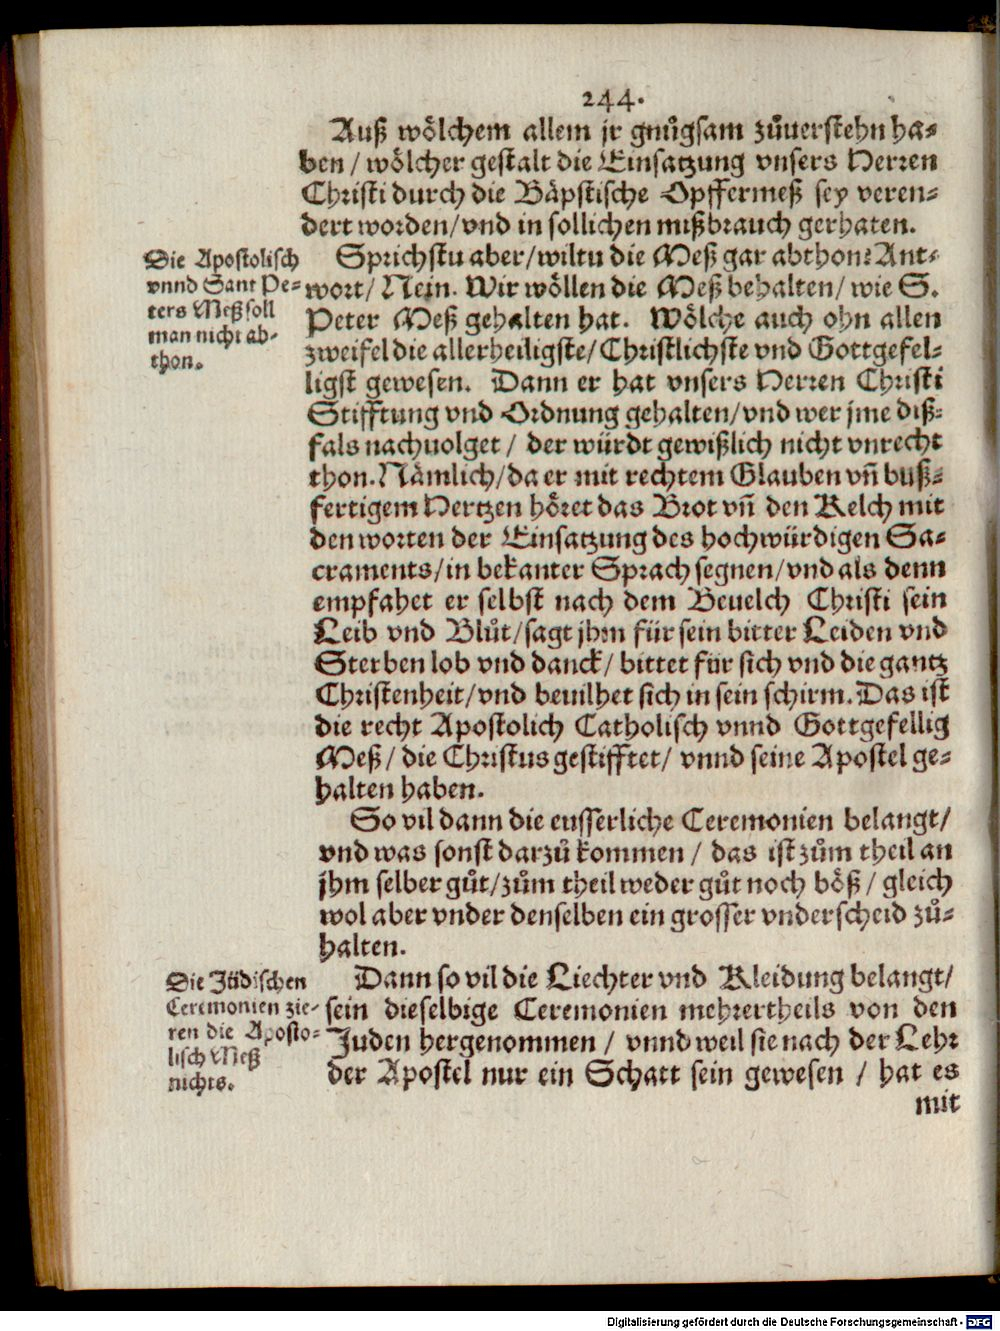 244.
Auß wölchem allem jr gnůgsam zůuerstehn ha⸗
ben / wölcher gestalt die Einsatzung vnsers Herren
Christi durch die Bäpstische Opffermeß sey veren⸗
dert worden/vnd in sollichen mißbrauch gerhaten.
Die Apostolisch
vnnd Sant Pe⸗
ters Meß soll
man nicht ab⸗
thon.
Sprichstu aber/wiltu die Meß gar abthon? Ant⸗
wort/ Nein. Wir wöllen die Meß behalten/ wie S.
Peter Meß gehalten hat. Wölche auch ohn allen
zweifel die allerheiligste/Christlichste vnd Gottgefel⸗
ligst gewesen. Dann er hat vnsers Herren Christi
Stifftung vnd Ordnung gehalten/vnd wer jme diß⸗
fals nachuolget / der würdt gewißlich nicht vnrecht
thon. Nämlich/da er mit rechtem Glauben vñ buß⸗
fertigem Hertzen höret das Brot vñ den Kelch mit
den worten der Einsatzung des hochwürdigen Sa⸗
craments/in bekanter Sprach segnen/vnd als denn
empfahet er selbst nach dem Beuelch Christi sein
Leib vnd Blůt/sagt jhm für sein bitter Leiden vnd
Sterben lob vnd danck/ bittet für sich vnd die gantz
Christenheit/vnd beuilhet sich in sein schirm. Das ist
die recht Apostolich Catholisch vnnd Gottgefellig
Meß/ die Christus gestifftet/ vnnd seine Apostel ge⸗
halten haben.
So vil dann die eusserliche Ceremonien belangt/
vnd was sonst darzů kommen / das ist zům theil an
jhm selber gůt/zům theil weder gůt noch böß/ gleich
wol aber vnder denselben ein grosser vnderscheid zů⸗
halten.
Die Jüdischen
Ceremonien zie⸗
ren die Aposto⸗
lisch Meß
nichts.
Dann so vil die Liechter vnd Kleidung belangt/
sein dieselbige Ceremonien mehrertheils von den
Juden hergenommen / vnnd weil sie nach der Lehr
der Apostel nur ein Schatt sein gewesen / hat es
mit
Digitalisierung gefördert durch die Deutsche Forschungsgemeinschaft - DFG